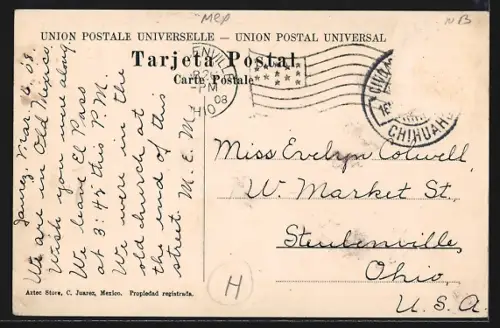 Mex
NB
UNION POSTALE UNIVERSELLE - UNION POSTAL UNIVERSAL
Tarjeta Postal
Carte Postale
ENVIL
PM
08
HIO
CHIHUAH
Juarez, Mar. 16, 08.
We are in Old Mexico.
Wish you were along.
We leave El Paso
at 3:45 this P.M.
We were in the
old church at
the end of this
street. M. E. M.
Miss Evelyn Colwell
W. Market St.,
Steubenville,
Ohio,
U. S. A.
H
Aztec Store, C. Juarez, Mexico. Propiedad registrada.